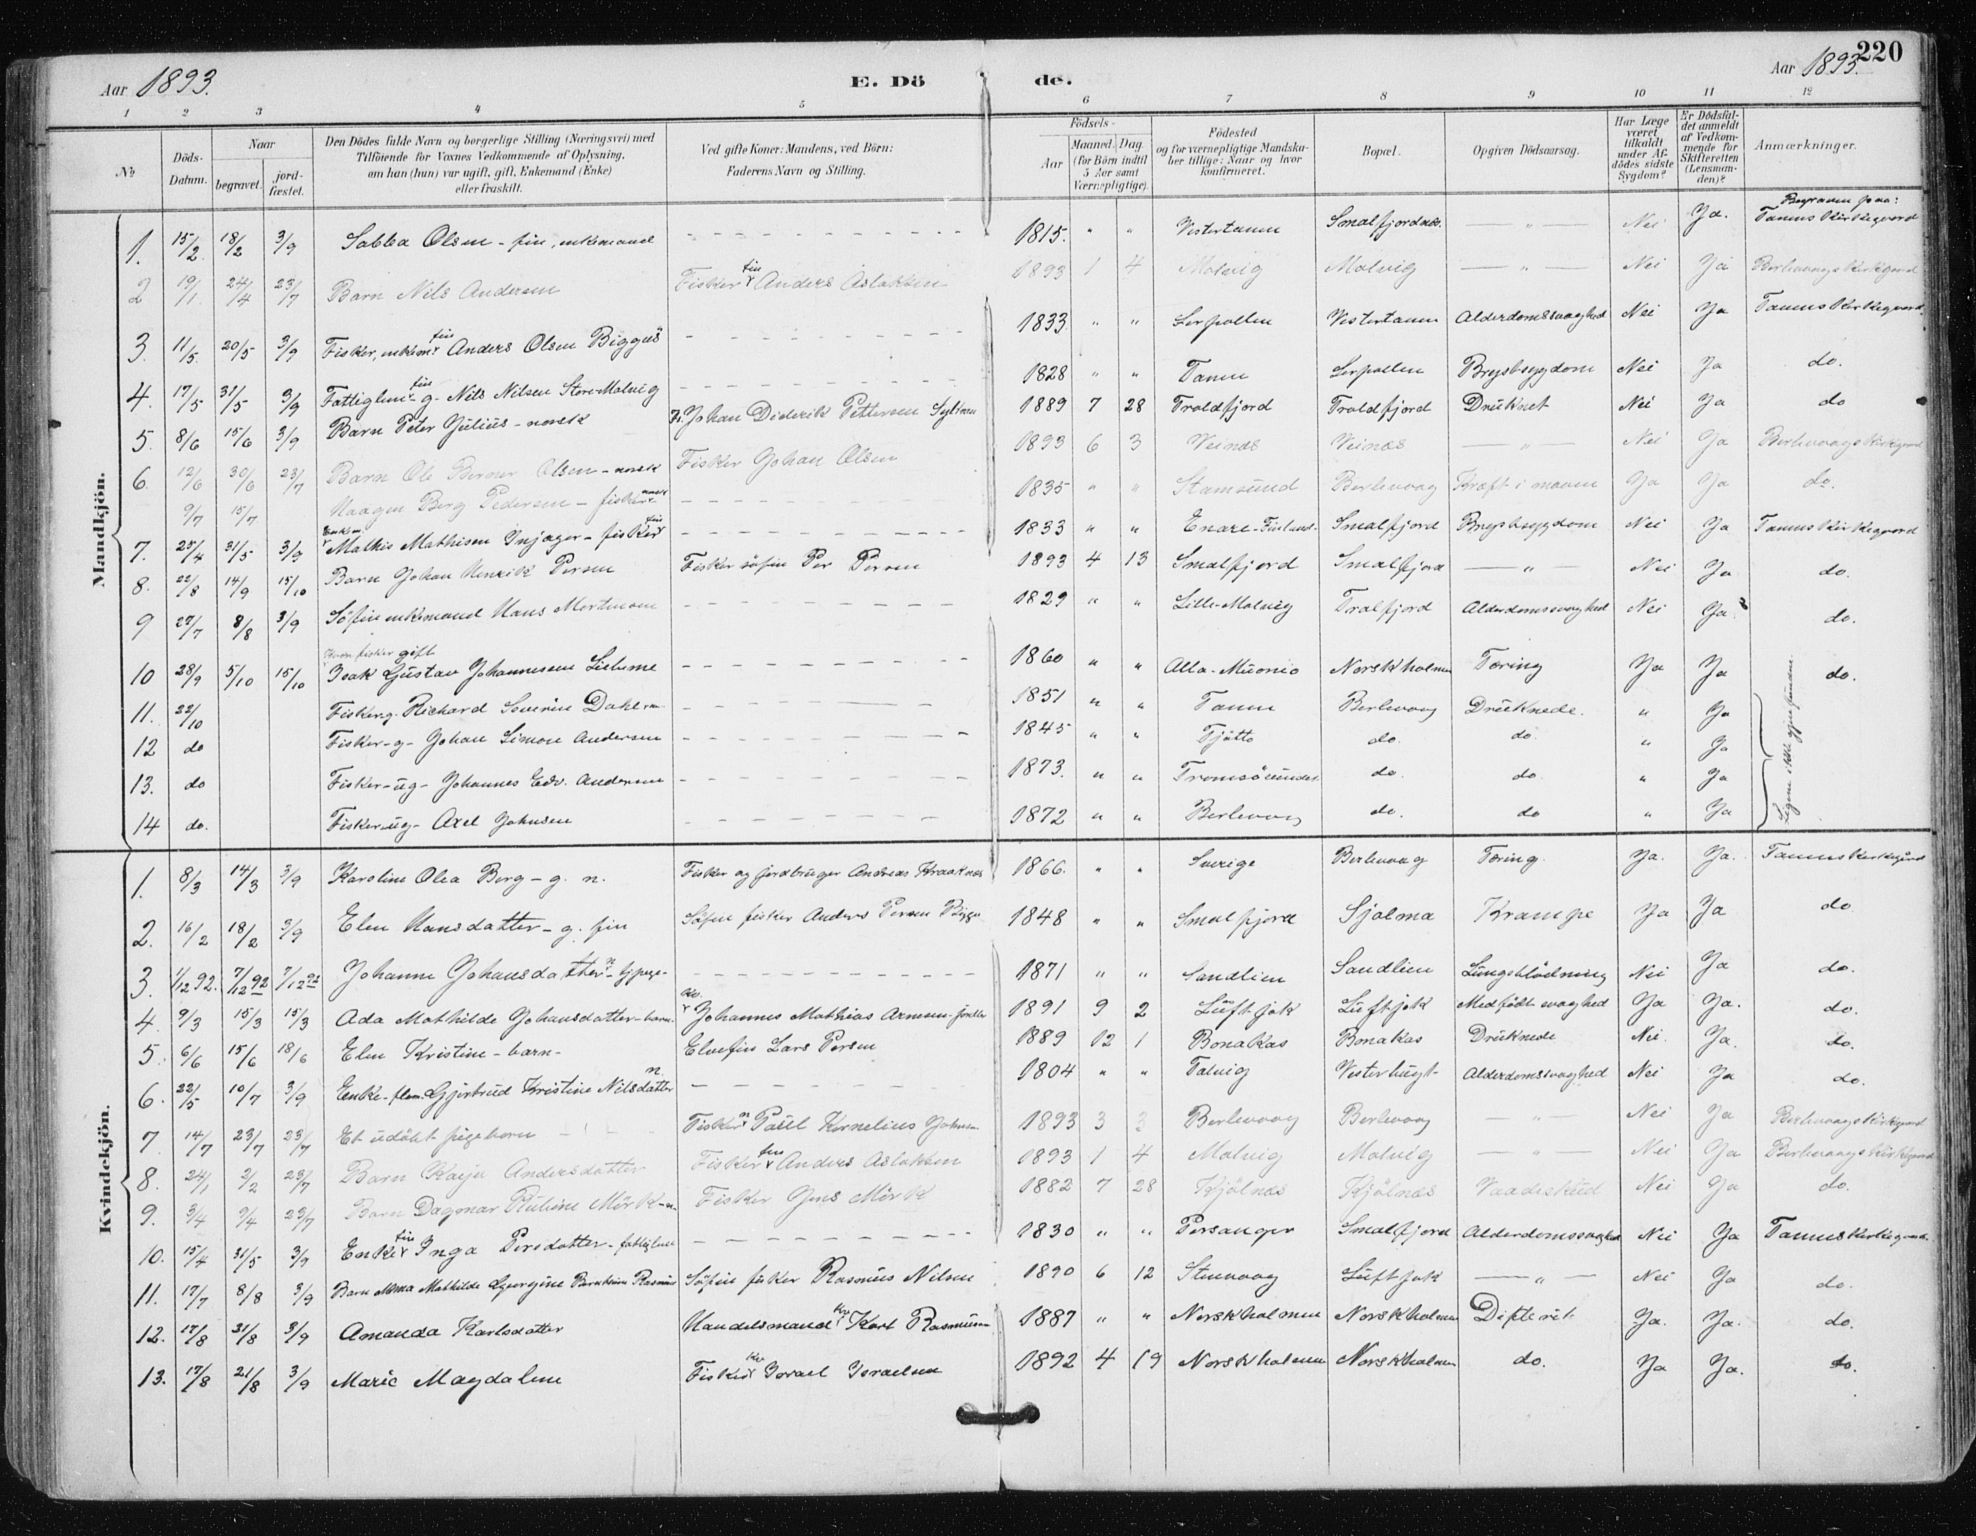 220
Aar 1893. E. Dö de. Aar 1893.
1 2 3 4 5 6 7 8 9 10 11 12
No | Döds-Datum. | Naar begravet. | jordfæstet. | Den Dödes fulde Navn og borgerlige Stilling (Næringsvei) med Tilföiende for Voxnes Vedkommende af Oplysning, om han (hun) var ugift, gift, Enkemand (Enke) eller fraskilt. | Ved gifte Koner: Mandens, ved Börn: Faderens Navn og Stilling. | Födsels- Aar | Maaned. Dag. (for Börn indtil 5 Aar samt Værnepligtige). | Födested og for værnepligtige Mandskaber tillige: Naar og hvor konfirmeret. | Bopæl. | Opgiven Dödsaarsag. | Har Læge været tilkaldt under Afdödes sidste Sygdom? | Er Dödsfaldet anmeldt af Vedkommende for Skifteretten (Lensmanden)? | Anmærkninger.
Mandkjön.
Begraven paa:
1. 15/2 18/2 3/9 Sabba Olsen - fin, enkemand - - - 1815. " " Vestertanen Smalfjordnes. — " — Nei Ja. Tanens Kirkegaard
2 19/1. 24/4 23/7 Barn Nils Andersen Fisker fin Anders Aslaksen 1893 1 4 Molvig Molvig — " — Nei Ja Berlevaags Kirkegaard
3. 11/5. 20/5 3/9 Fisker, enkem. fin Anders Olsen Biggus - - - 1833. " " Lerpollen Vestertanen Alderdomssvaghed Nei Ja Tanens Kirkegaard
4. 17/5 31/5 3/9 Fattiglem fin - g. Nils Nilsen Store-Molvig - - - 1828 " " Tanen Lerpollen Brystsygdom Nei Ja do.
5. 8/6 15/6 3/9 Barn Peter Julius - norsk F. Johan Diderik Pettersen Sylven 1889 7 28 Troldfjord Troldfjord Druknet Nei Ja do
6. 12/6 30/6 23/7 Barn Ole Berner Olsen - norsk Fisker Johan Olsen 1893 6 3 Veines Veines — " — Nei Ja Berlevaags Kirkegaard
9/7 15/7 Haagen Berg Pedersen - fisker norsk - - - 1835 " " Stamsund Berlevaag Kræft i maven Ja Ja do.
7. 25/4 31/5 3/9 Enkem. Mathis Mathisen Injager - fisker fin - - - 1833 " " Enare - Finland. Smalfjord Brystsygdom Nei Ja Tanens Kirkegaard
8. 22/8 14/9 15/10 Barn Johan Henrik Persen Fisker söfin Per Persen 1893 4 13 Smalfjord Smalfjord — " — Nei Ja do.
9 27/7 8/8 3/9 Söfin enkemand Hans Mortensen - - - 1829 " " Lille-Molvig Tralfjord Alderdomssvaghed Nei Ja do.
10 28/9 5/10 15/10 fisker gift Isak Gustav Johannesen - - - 1860 " " Alla-Muonio Norskholmen Tæring Ja Ja do.
11. 22/10 Fisker g. Richard Severin Dahl - - - 1851 " " Tanen Berlevaag Druknede. " Ja
12 do Fisker - g - Johan Simon Andersen - - - 1845 " " Tjötto do. do. " Ja
13. do Fisker - ug - Johannes Edv. Andersen - - - 1873. " " Tromsösundet do. do. " Ja
14 do. Fisker - ug - Axel Johnsen - - - 1872 " " Berlevaag do. do " Ja
Ligene ikke gjenfundne
Kvindekjön.
1. 8/3 14/3 3/9 Karoline Olea Berg - g. n. Fisker og jordbruger Andreas Kraaknes 1866. " " Sverige Berlevaag Tæring. Ja. Ja. Tanens Kirkegaard
2. 16/2 18/2 3/9 Elen Hansdatter - g. fin Söfin fisker Anders Persen Bigga 1848 " " Smalfjord Sjolma Krampe Ja Ja do
3. 1/12 92. 7/12 92 7/12 92 Johanne Johansdatter n - tj.pige - - - - 1871 " " Sandlien Sandlien Lungeblödning Nei Ja do.
4. 9/3 15/3 15/3 Ada Mathilde Johansdatter - barn kv. Johannes Mathias Arnesen - 1891 9 2 Luftjok Luftjok Medfödt svaghed Ja Ja. do.
5. 6/6 15/6 18/6 Elen Kristine - barn - Elvefin Lars Persen 1889 12 1 Bonakas Bonakas Druknede Nei. Ja. do.
6. 22/5 10/7 3/9 Enke - Gjertrud Kristine Nilsdatter n. - - - 1804 " " Talvig Vesterbugt - Alderdomssvaghed Nei Ja do.
7 14/7 23/7 23/7 Et udöbt pigebarn - - Fisker n Paul Kornelius Johnsen 1893 3 3 Berlevaag Berlevaag — " — Nei Ja Berlevaags Kirkegaard
8. 24/1 2/2 23/7 Barn Kaja Andersdatter Fisker fin Anders Aslaksen 1893 1 4 Molvig Molvig — " — Nei Ja Berlevaags Kirkegaard
9. 3/4 9/4 23/7 Barn Dagmar Mörk - n. Fisker Jens Mörk 1882 7 28 Kjölnes Kjölnes Vaadeskud Nei Ja do.
10. 15/4 31/5 3/9 Enke fin Inga Persdatter - fattiglem - - - 1830 " " Porsanger Smalfjord Alderdomssvaghed Nei Ja Tanens Kirkegaard
11. 17/7 8/8 3/9 Barn Anna Mathilde Georgine Rasmus Söfin fisker Rasmus Nilsen 1890 6 12 Stenvaag Luftjok — " — Nei Ja do.
12. 17/8 31/8 3/9 Amanda Karlsdatter Handelsmand kv Karl Rasmussen 1887 " " Norskholmen Norskholmen Difterit Ja. Ja. do.
13. 17/8 21/8 3/9 Marie Magdalene Fisker kv Israel Israelsen 1892 4 19 Norskholmen Norskholmen do. Ja Ja. do.